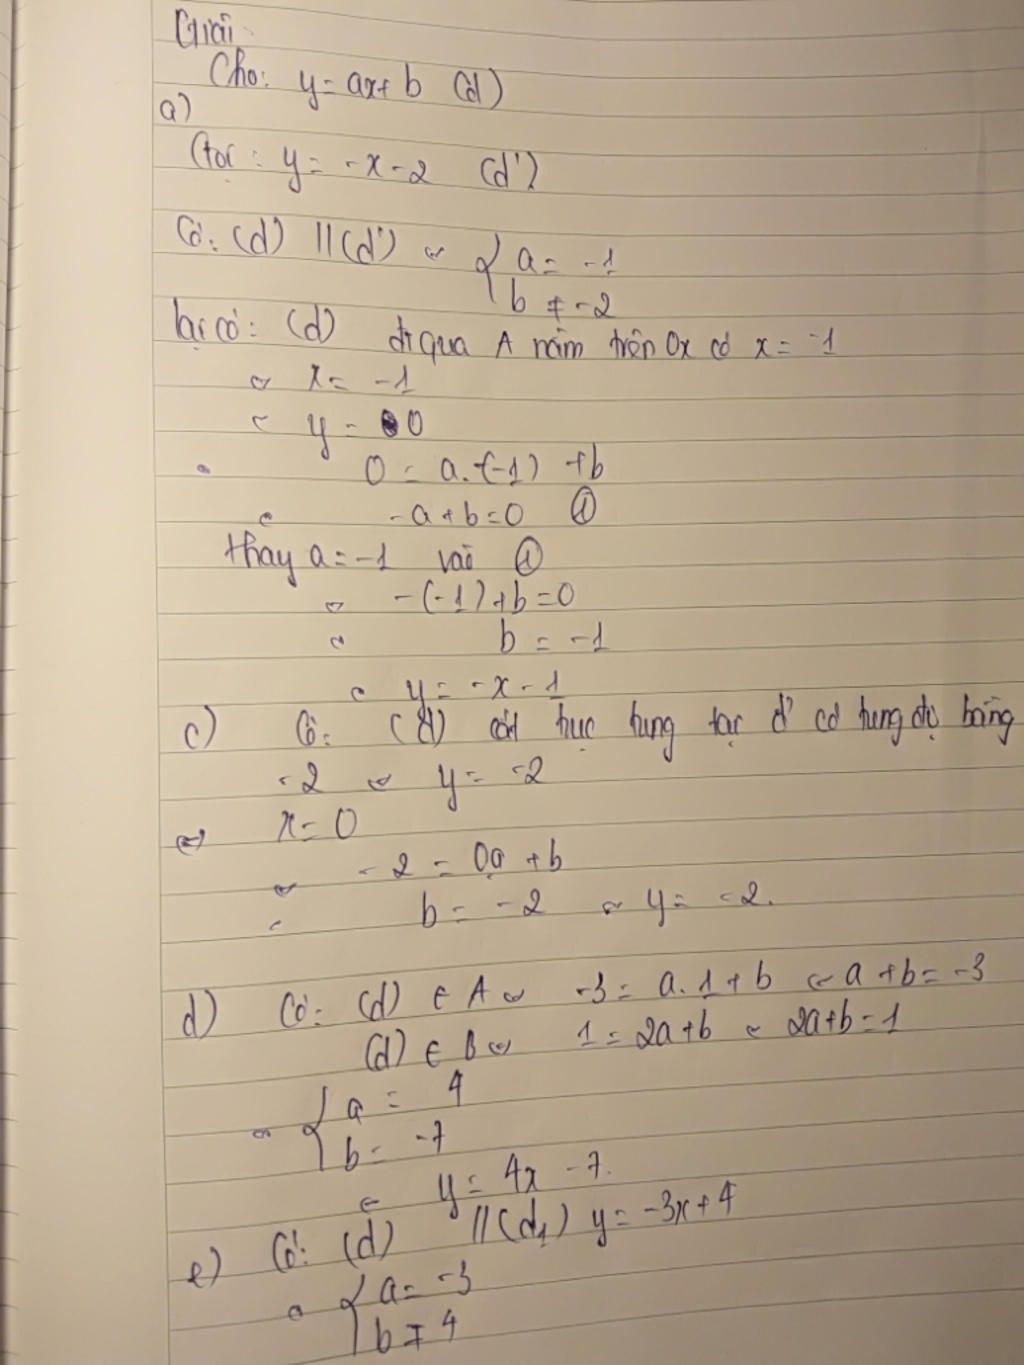 Giải
Cho: y = ax + b (d)
a)
Gọi: y = -x - 2 (d')
Có: (d) // (d') ⇔ { a = -1
b ≠ -2
lại có: (d) đi qua A nằm trên Ox có x = -1
⇔ x = -1
⇔ y = 0
0 = a.(-1) + b
⇔ -a + b = 0 ①
thay a = -1 vào ①
⇔ -(-1) + b = 0
⇔ b = -1
⇔ y = -x - 1
c) Có: (d) cắt trục tung tại đ' có tung độ bằng
-2 ⇔ y = -2
⇔ x = 0
⇔ -2 = 0a + b
⇔ b = -2 ⇔ y = -2.
d) Có: (d) ∈ A ⇔ -3 = a.1 + b ⇔ a + b = -3
(d) ∈ B ⇔ 1 = 2a + b ⇔ 2a + b = 1
⇔ { a = 4
b = -7
⇔ y = 4x - 7.
e) Có: (d) // (d₁) y = -3x + 4
⇔ { a = -3
b ≠ 4